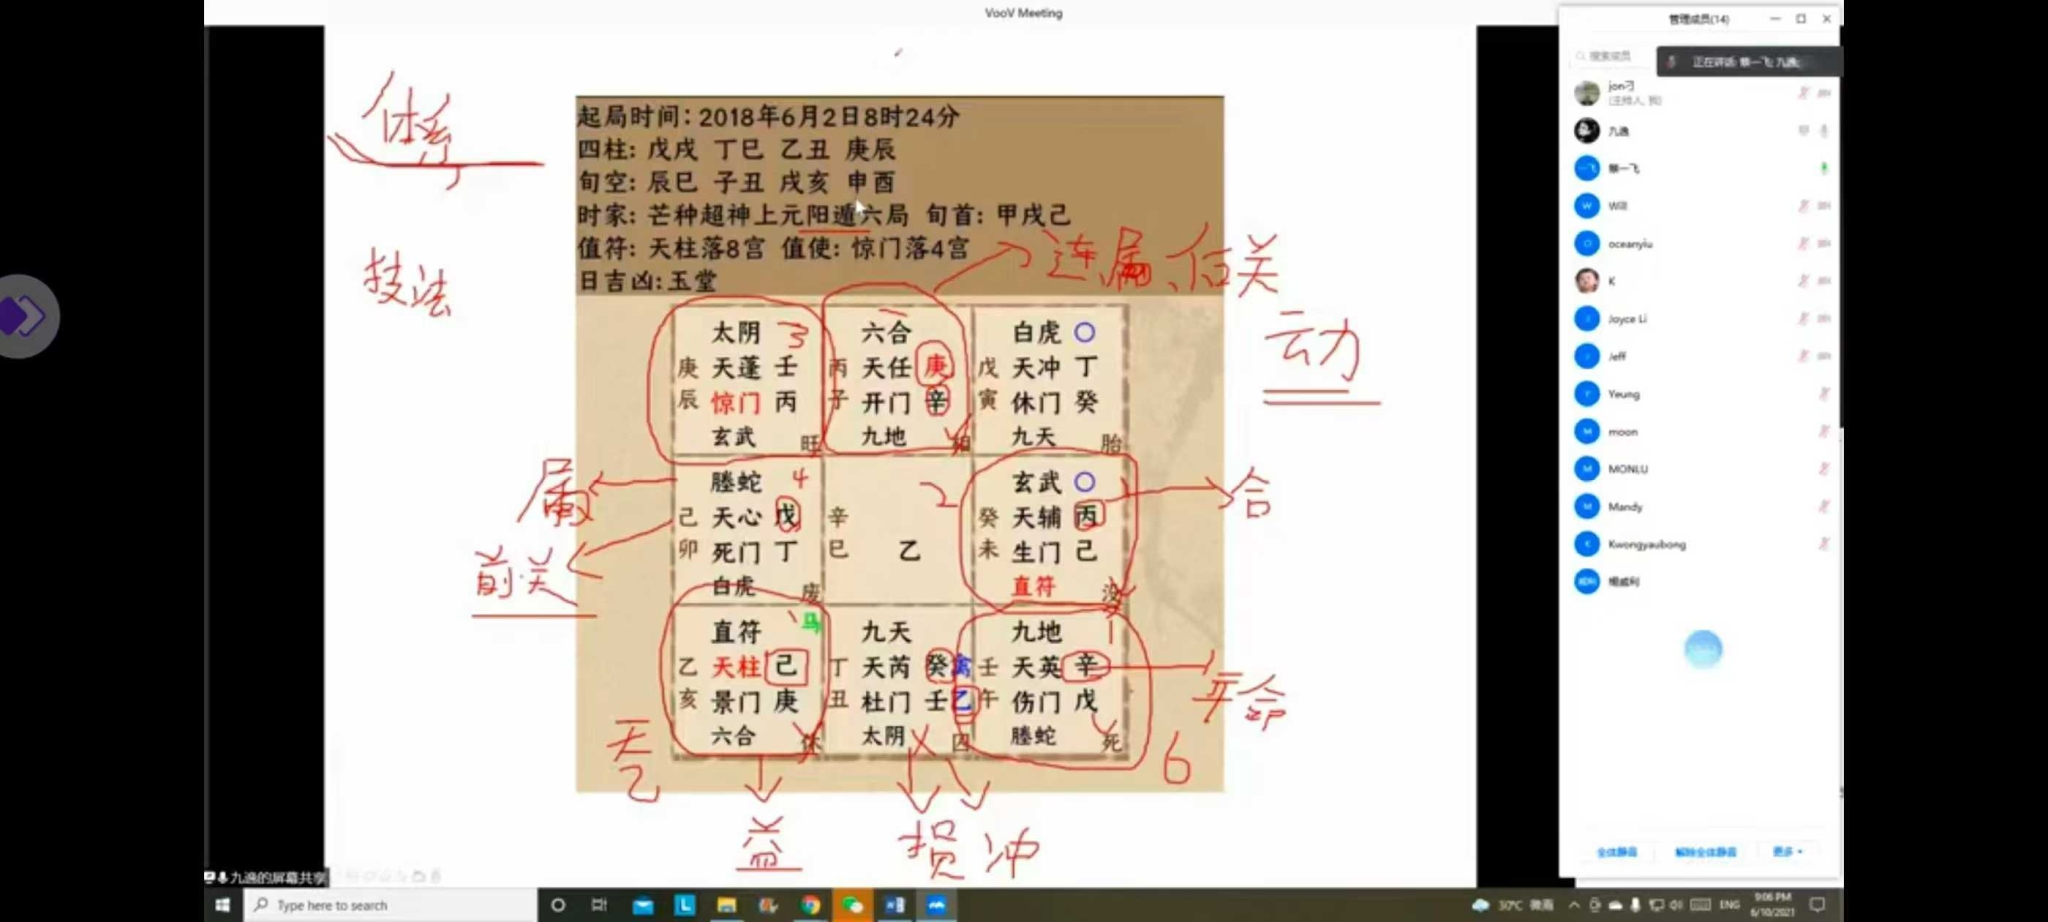 VooV Meeting
体系
技法
起局时间：2018年6月2日8时24分
四柱：戊戌 丁巳 乙丑 庚辰
旬空：辰巳 子丑 戌亥 申酉
时家：芒种超神上元阳遁六局 旬首：甲戌己
值符：天柱落8宫 值使：惊门落4宫
日吉凶:玉堂
连属、后关
云力
太阴 3
庚 天蓬 壬
辰 惊门 丙
玄武 旺
六合
丙 天任 庚
子 开门 辛
九地 相
白虎 〇
戊 天冲 丁
寅 休门 癸
九天 胎
属
前关
螣蛇 4
己 天心 戊
卯 死门 丁
白虎 废
2
辛
巳 乙
玄武 〇
癸 天辅 丙
未 生门 己
直符 没
合
直符 马
乙 天柱 己
亥 景门 庚
六合 休
九天
丁 天芮 癸 禽
丑 杜门 壬 乙
太阴 囚
九地 1
壬 天英 辛
午 伤门 戊
螣蛇 死
年命
天乙
6
益
损 冲
九逸的屏幕共享
管理成员(14)
搜索成员
正在讲话: 蔡一飞; 九逸;
jon刁
(主持人, 我)
九逸
一飞 蔡一飞
W Will
O oceanyiu
K
J Joyce Li
J Jeff
Y Yeung
M moon
M MONLU
M Mandy
K Kwongyaubong
杨威利
全体静音 解除全体静音 更多
Type here to search
30°C 微雨
ENG
9:06 PM
6/10/2021